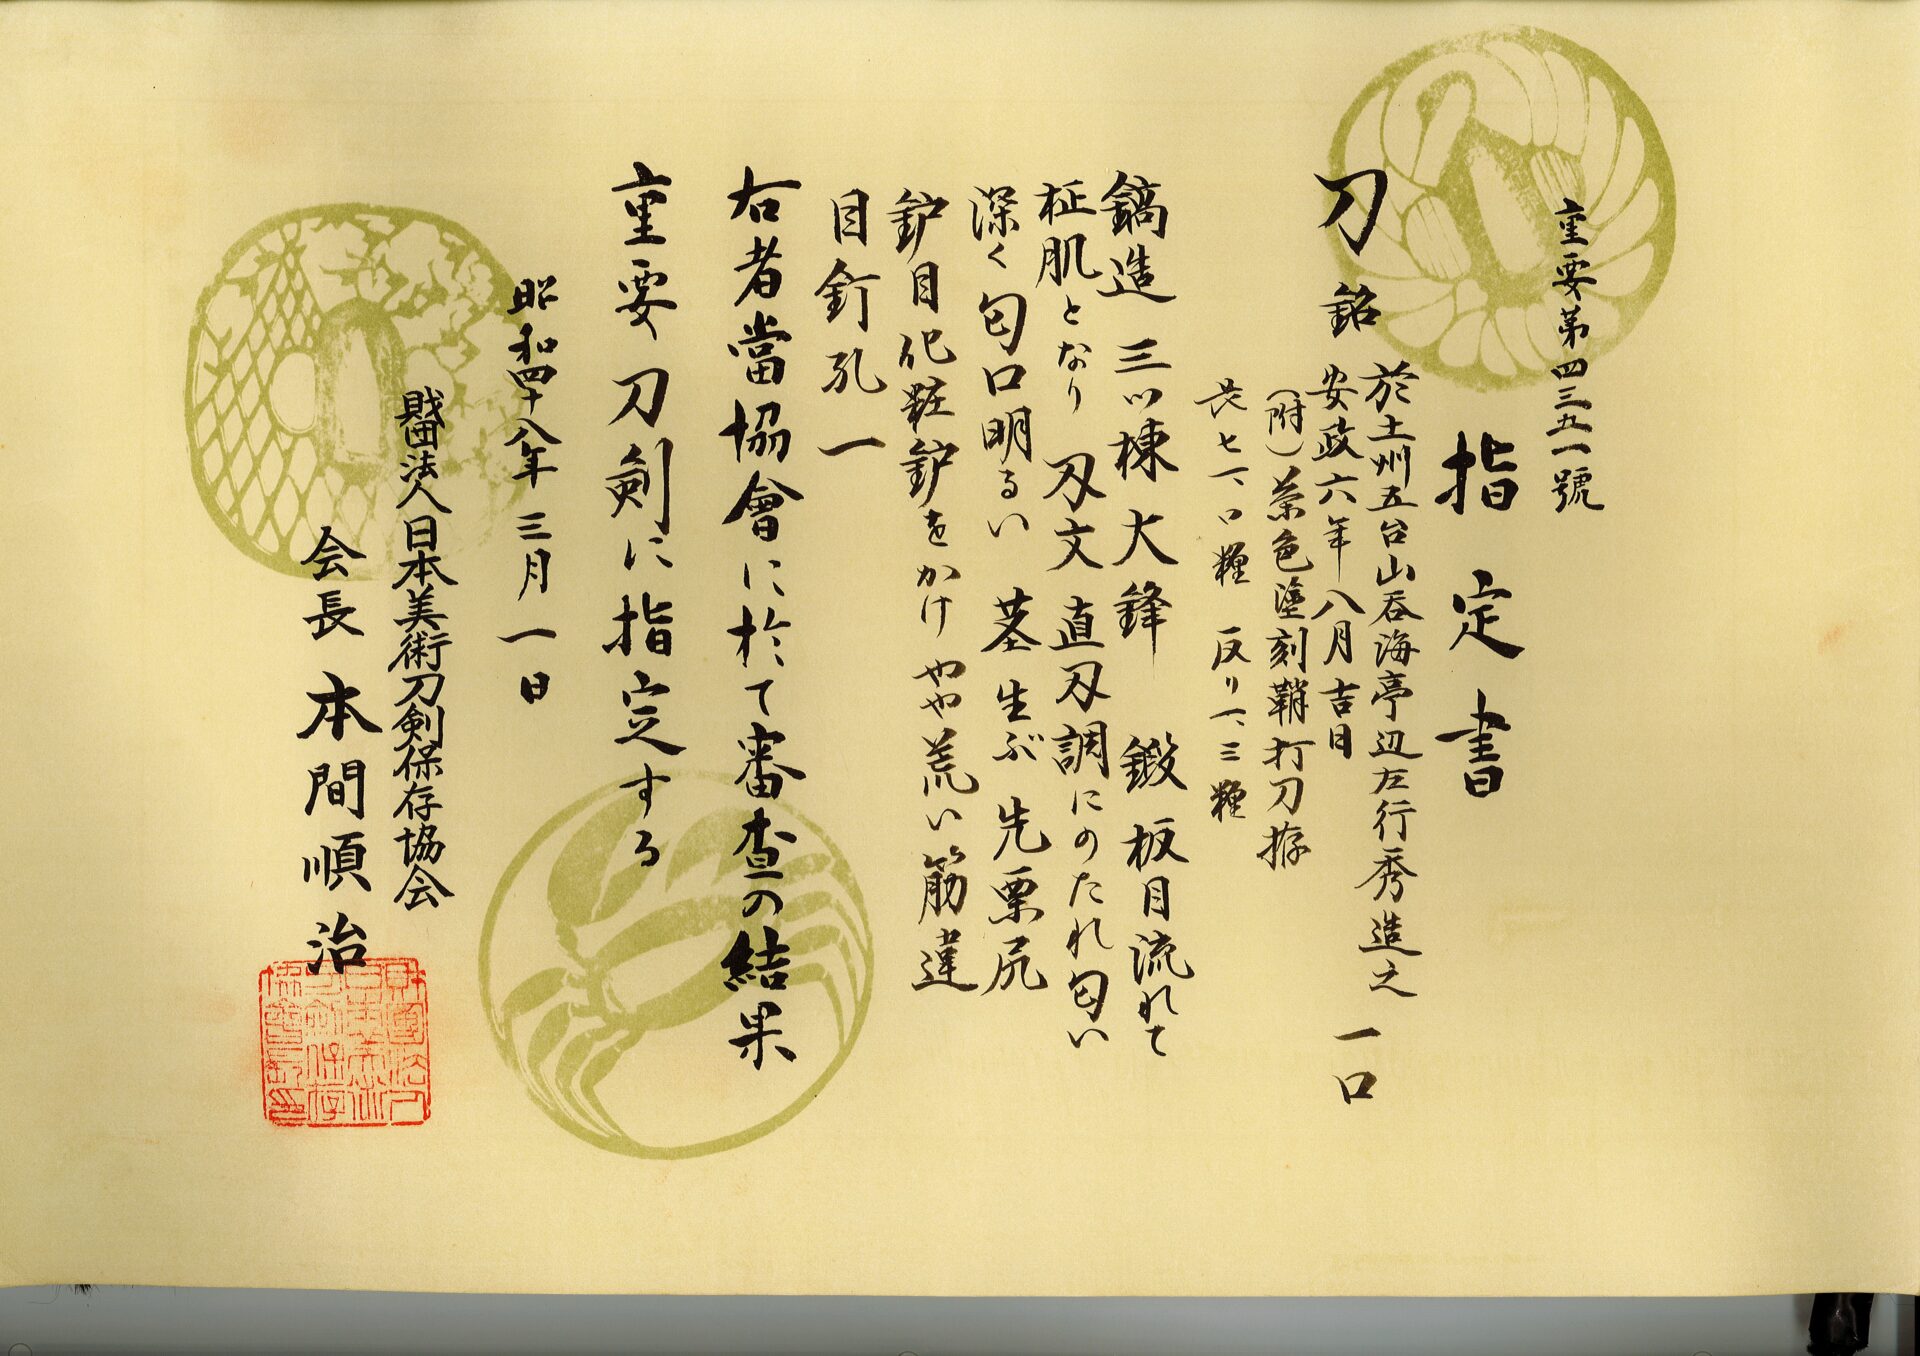 重要第四三五一號
指定書
刀 銘 於土州五台山吞海亭辺左行秀造之
安政六年八月吉日 一口
(附)茶色塗刻鞘打刀拵
長七一、〇糎 反り一、三糎
鎬造 三ツ棟 大鋒 鍛 板目流れて
柾肌となり 刃文 直刃調にのたれ匂い
深く匂口明るい 茎 生ぶ 先栗尻
鈩目化粧鈩をかけ やや荒い筋違
目釘孔一
右者當協會に於て審査の結果
重要刀剣に指定する
昭和四十八年三月一日
財団法人日本美術刀剣保存協会
会長 本間順治